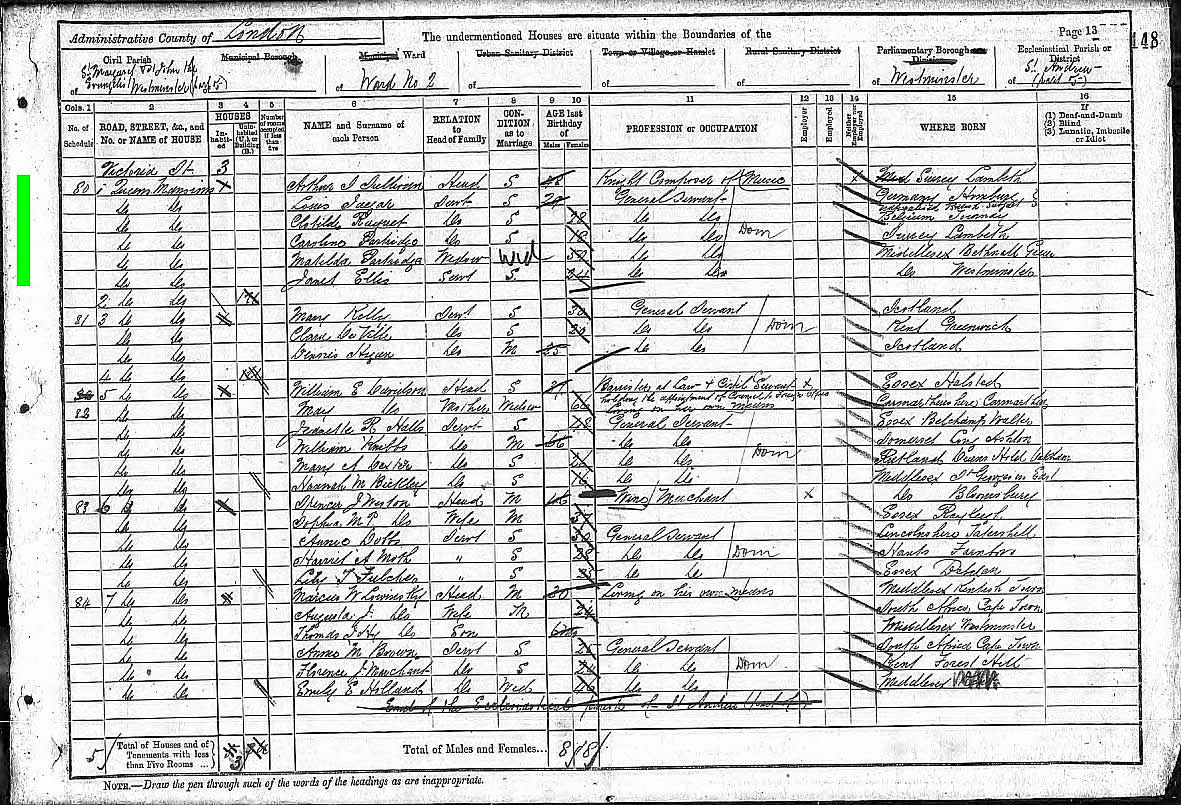 Administrative County of London
The undermentioned Houses are situate within the Boundaries of the
Page 13
148
Civil Parish
of St Margaret & St John the Evangelist Westminster (part of)
Municipal Borough
of
Municipal Ward
of Ward No 2
Urban Sanitary District
of
Town or Village or Hamlet
of
Rural Sanitary District
of
Parliamentary Borough or Division
of Westminster
Ecclesiastical Parish or District
of St Andrew (part of)
Cols. 1 2 3 4 5 6 7 8 9 10 11 12 13 14 15 16
No. of Schedule
ROAD, STREET, &c., and No. or NAME of HOUSE
HOUSES
Inhabited
Uninhabited (U.), or Building (B.)
Number of rooms occupied if less than five
NAME and Surname of each Person
RELATION to Head of Family
CONDITION as to Marriage
AGE last Birthday of
Males Females
PROFESSION or OCCUPATION
Employer
Employed
Neither Employer nor Employed
WHERE BORN
If
(1) Deaf-and-Dumb
(2) Blind
(3) Lunatic, Imbecile or Idiot
Victoria St 3
80 1 Queens Mansions Arthur S Sullivan Head S Knight Composer of Music Surrey Lambeth
Do Do Louis Serv S General Servant Germany
Do Do Clotilde Raquet Do S 28 Do Do Belgium
Do Do Caroline Partridge Do S 18 Do Do Dom Surrey Lambeth
Do Do Matilda Partridge Widow Wid 52 Middlesex Bethnal Green
Do Do Janet Ellis Serv S 24 Do Do Do Westminster
2 Do Do
81 3 Do Do Mary Kelly Serv S 30 General Servant Scotland
Do Do Clara S Do Do Dom Kent Greenwich
Do Do Dennis Do M Do Do Scotland
4 Do Do
5 Do Do William E Davidson Head S Barrister at Law & Civil Servant X Essex Halsted
holding the appointment of Counsel to Foreign Office
82 Mary Do Mother Widow Living on her own means Carmarthenshire Carmarthen
Do Do R Halls Servt S 18 General Servant Essex Belchamp Walter
Do Do William Knibbs Do M Do Do Somerset Long Ashton
Do Do Mary A Dexter Do S Do Do Dom Rutland
Do Do Hannah M Bickley Do S 16 Do Do Middlesex St Georges in East
83 6 Do Spencer J Weston Head M Wine Merchant X Do Bloomsbury
Do Do Sophia M P Do Wife M Essex Rayleigh
Do Do Annie Dobbs Servt S General Servant Lincolnshire Tatershall
Do Do Harriet A Moth " S 28 Do Do Dom Hants Farnboro
Do Do Lily F Fulcher " S Do Do Essex
84 7 Do Do Marcus W Head M 30 Living on his own means Middlesex Kentish Town
Do Do Augusta J Do Wife M 24 South Africa Cape Town
Do Do Thomas Do Son Middlesex Westminster
Do Do Anne M Brown Servt S General Servant South Africa Cape Town
Do Do Florence J Marchant Do S 24 Do Do Dom Kent Forest Hill
Do Do Emily E Holland Do Wid 46 Do Do Middlesex
End of the Ecclesiastical Parish of St Andrew (part of)
5 Total of Houses and of Tenements with less than Five Rooms ...
Total of Males and Females...
8 18
NOTE.—Draw the pen through such of the words of the headings as are inappropriate.